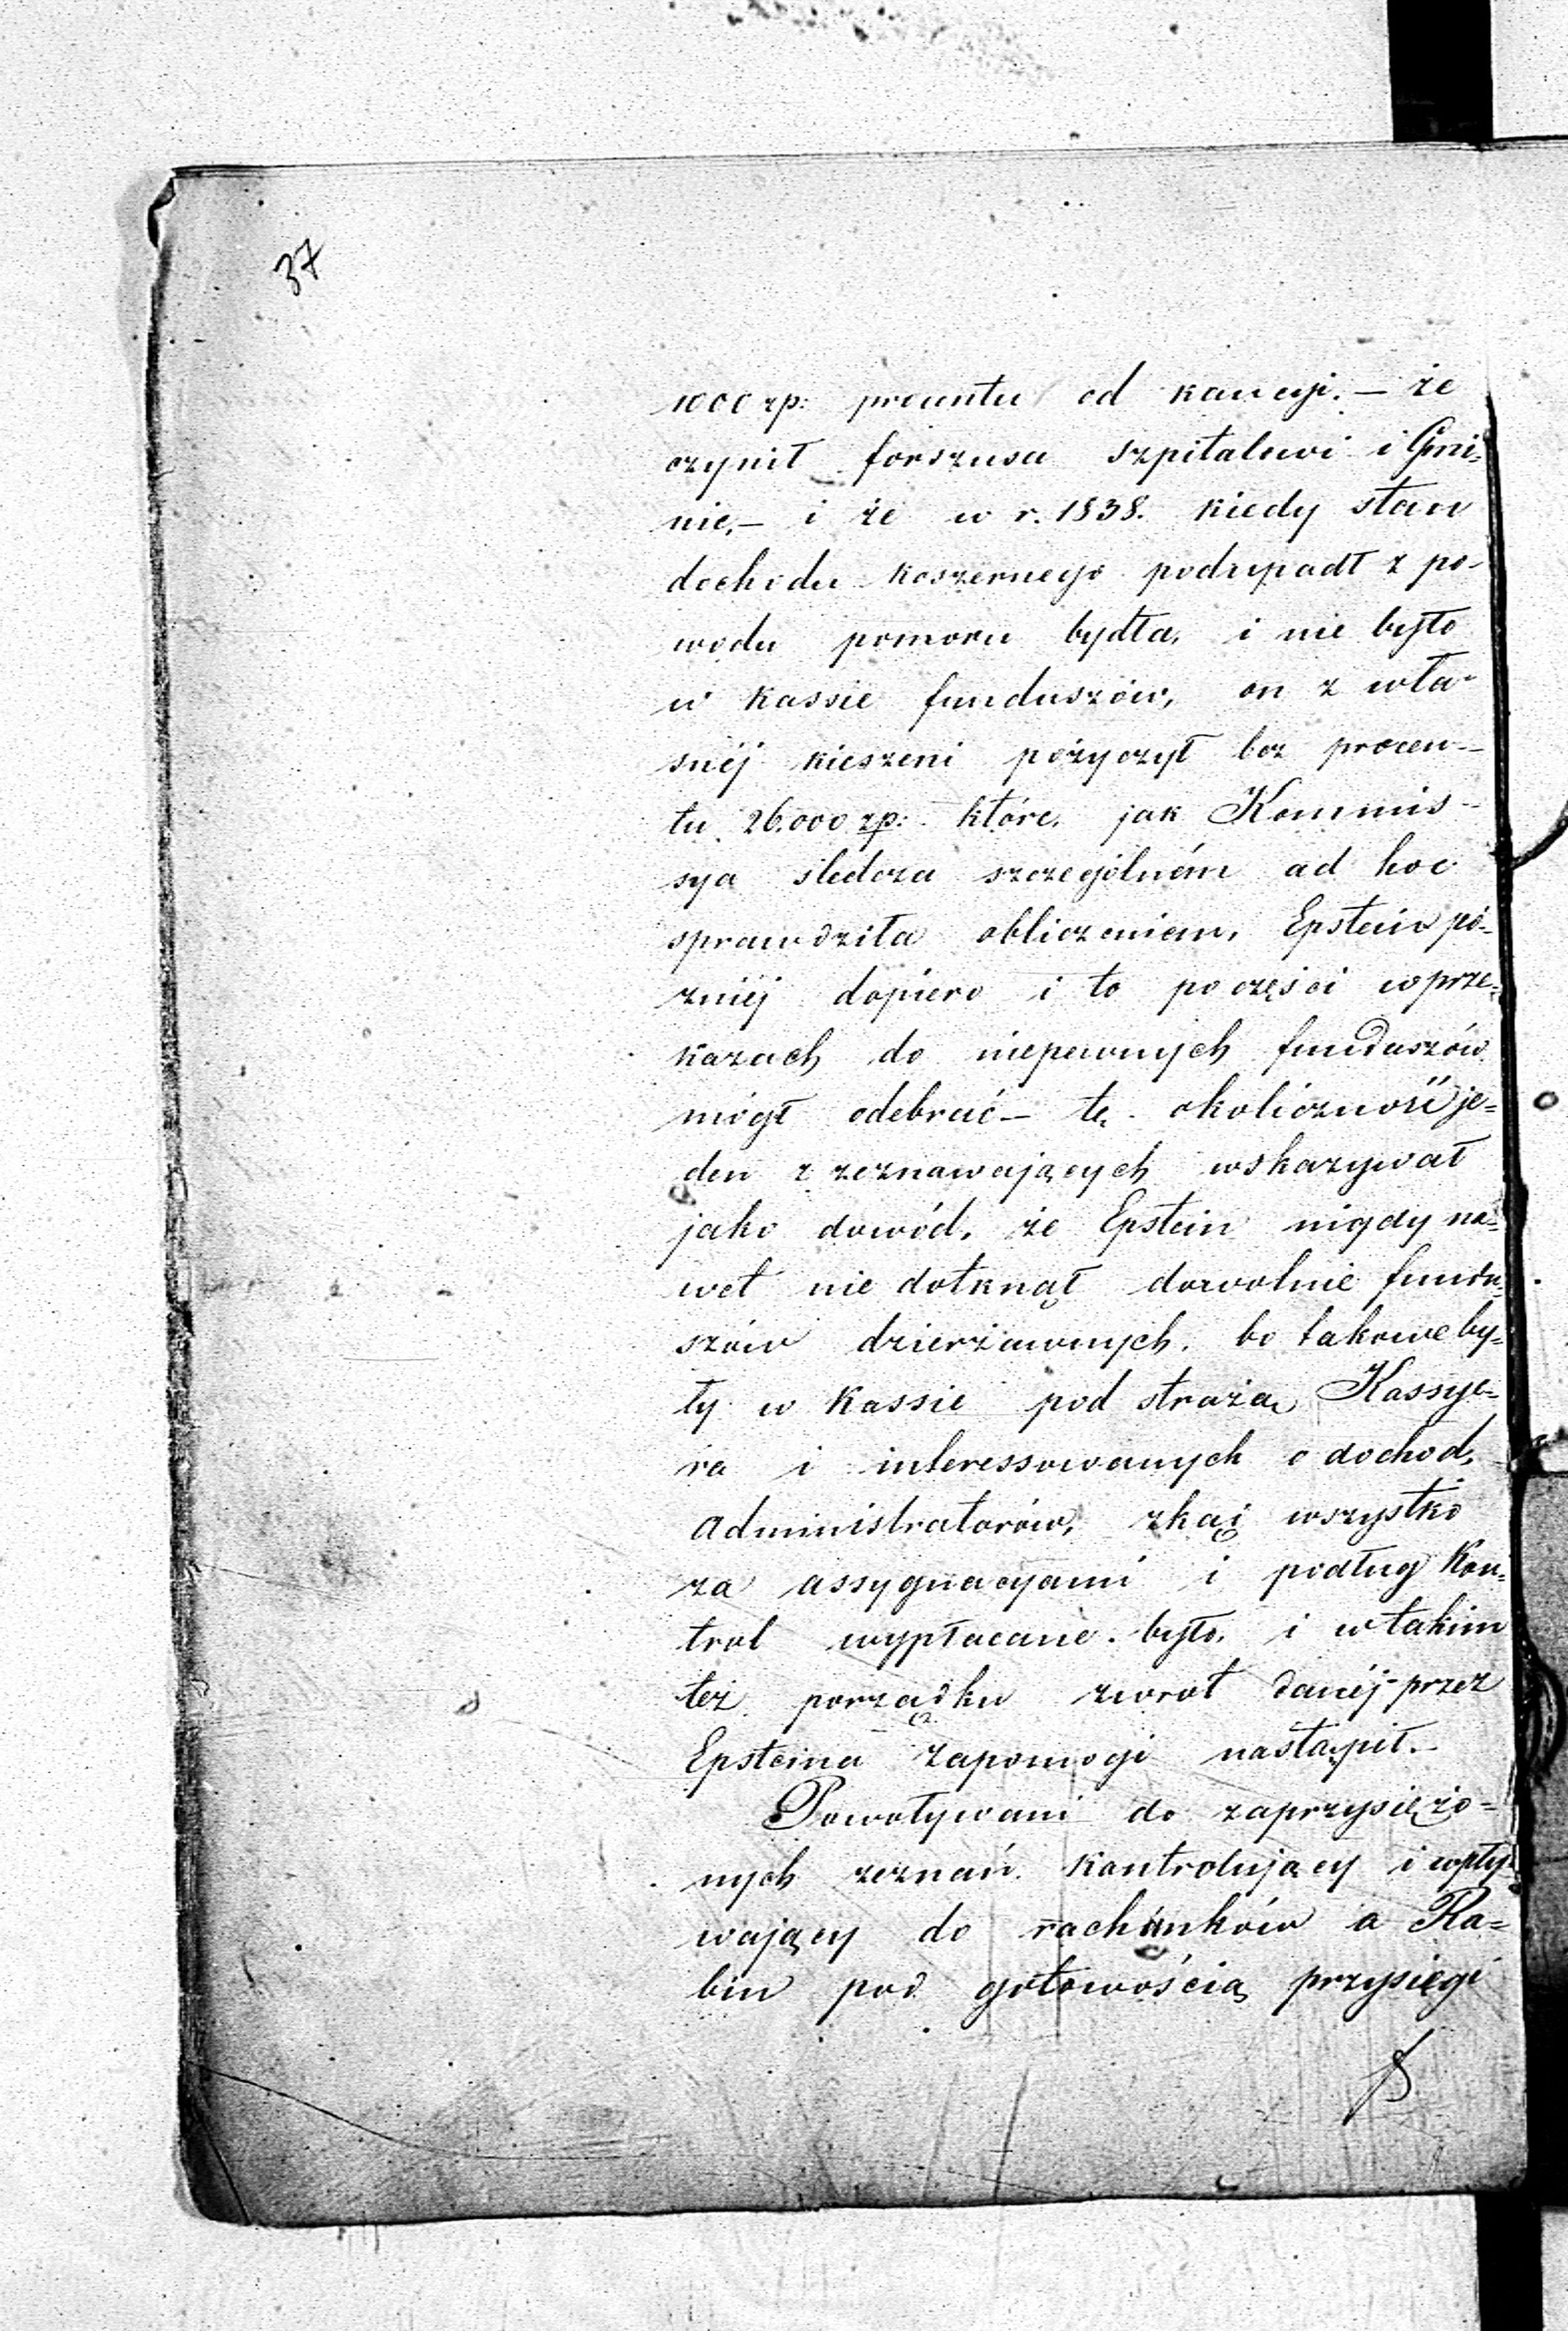 37
1000 zp: procentu od kaucyi. — że
czynił forszusa szpitalowi i Gmi-
nie, — i że w r. 1838. kiedy stan
dochodu koszernego podupadł z po-
wodu pomoru bydła, i nie było
w kassie funduszów, on z wła-
snéj kieszeni pożyczył bez procen-
tu 26.000 zp: które, jak Kommis-
sya śledcza szczególném ad hoc
sprawdziła obliczeniem, Epstein pó-
zniéj dopiero i to po części w prze-
kazach do niepewnych funduszów
mógł odebrać — tę okoliczność je-
den z zeznawających wskazywał
jako dowód, że Epstein nigdy na-
wet nie dotknął dowolnie fundu-
szów dzierżawnych, bo takowe by-
ły w Kassie pod strażą Kassye-
ra i interessowanych o dochod,
administratorów, zkąd wszystko
za assygnacyami i podług Kon-
trol wypłacane było, i w takim
też porządku zwrot danéj przez
Epsteina zapomogi nastąpił. —
Powoływani do zaprzysiężo-
nych zeznań kontrolujący i wpły-
wający do rachunków a Ra-
bin pod gotowością przysięgi